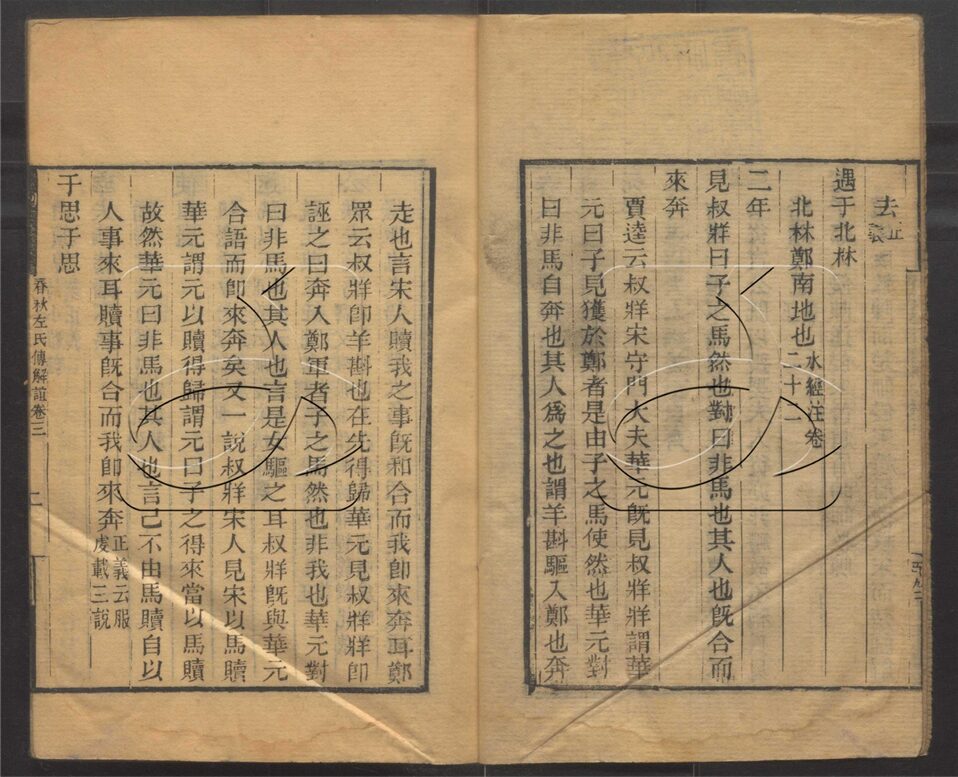 去正義
遇于北林
北林鄭南地也水經注卷二十二
二年
見叔牂曰子之馬然也對曰非馬也其人也既合而
來奔
賈逵云叔牂宋守門大夫華元既見叔牂牂謂華
元曰子見獲於鄭者是由子之馬使然也華元對
曰非馬自奔也其人為之也謂羊斟驅入鄭也奔
走也言宋人贖我之事既和合而我卽來奔耳鄭
眾云叔牂卽羊斟也在先得歸華元見叔牂牂卽
誣之曰奔入鄭軍者子之馬然也非我也華元對
曰非馬也其人也言是女驅之耳叔牂既與華元
合語而卽來奔矣又一說叔牂宋人見宋以馬贖
華元謂元以贖得歸謂元曰子之得來當以馬贖
故然華元曰非馬也其人也言己不由馬贖自以
人事來耳贖事既合而我卽來奔正義云服虔載三說
于思于思
春秋左氏傳解誼卷三